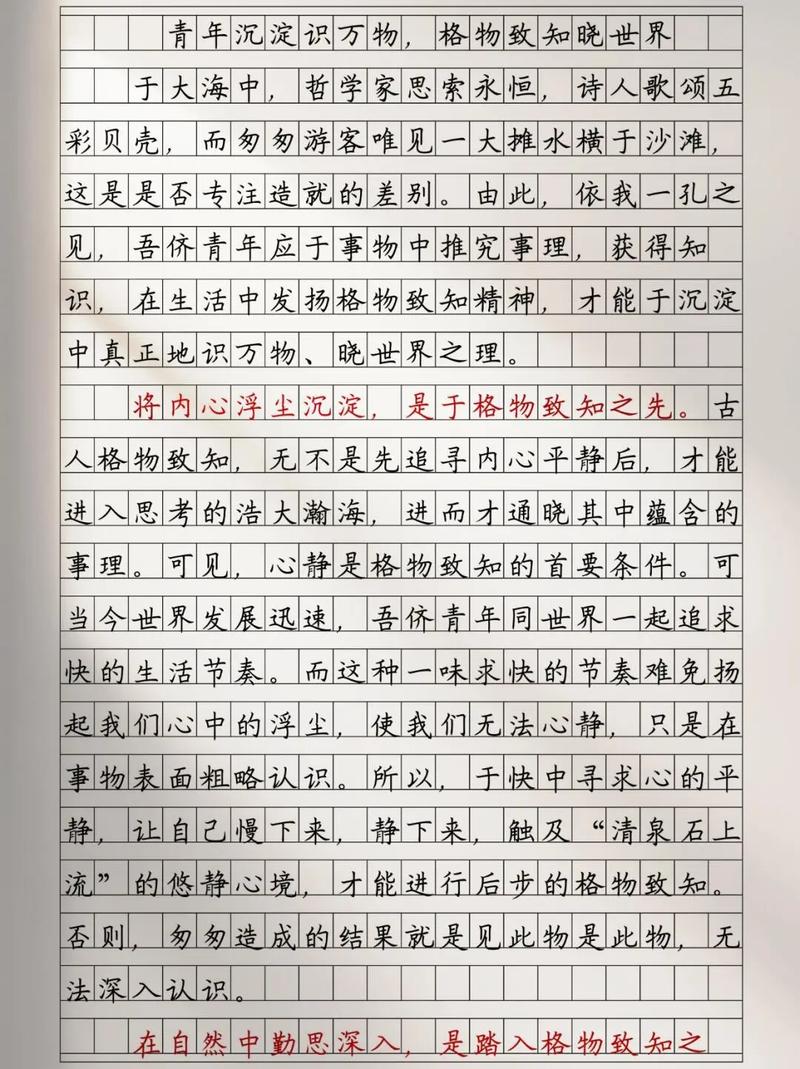 青年沉淀识万物，格物致知晓世界
于大海中，哲学家思索永恒，诗人歌颂五
彩贝壳，而匆匆游客唯见一大摊水横于沙滩，
这是是否专注造就的差别。由此，依我一孔之
见，吾侪青年应于事物中推究事理，获得知
识，在生活中发扬格物致知精神，才能于沉淀
中真正地识万物、晓世界之理。
将内心浮尘沉淀，是于格物致知之先。古
人格物致知，无不是先追寻内心平静后，才能
进入思考的浩大瀚海，进而才通晓其中蕴含的
事理。可见，心静是格物致知的首要条件。可
当今世界发展迅速，吾侪青年同世界一起追求
快的生活节奏。而这种一味求快的节奏难免扬
起我们心中的浮尘，使我们无法心静，只是在
事物表面粗略认识。所以，于快中寻求心的平
静，让自己慢下来，静下来，触及“清泉石上
流”的悠静心境，才能进行后步的格物致知。
否则，匆匆造成的结果就是见此物是此物，无
法深入认识。
在自然中勤思深入，是踏入格物致知之